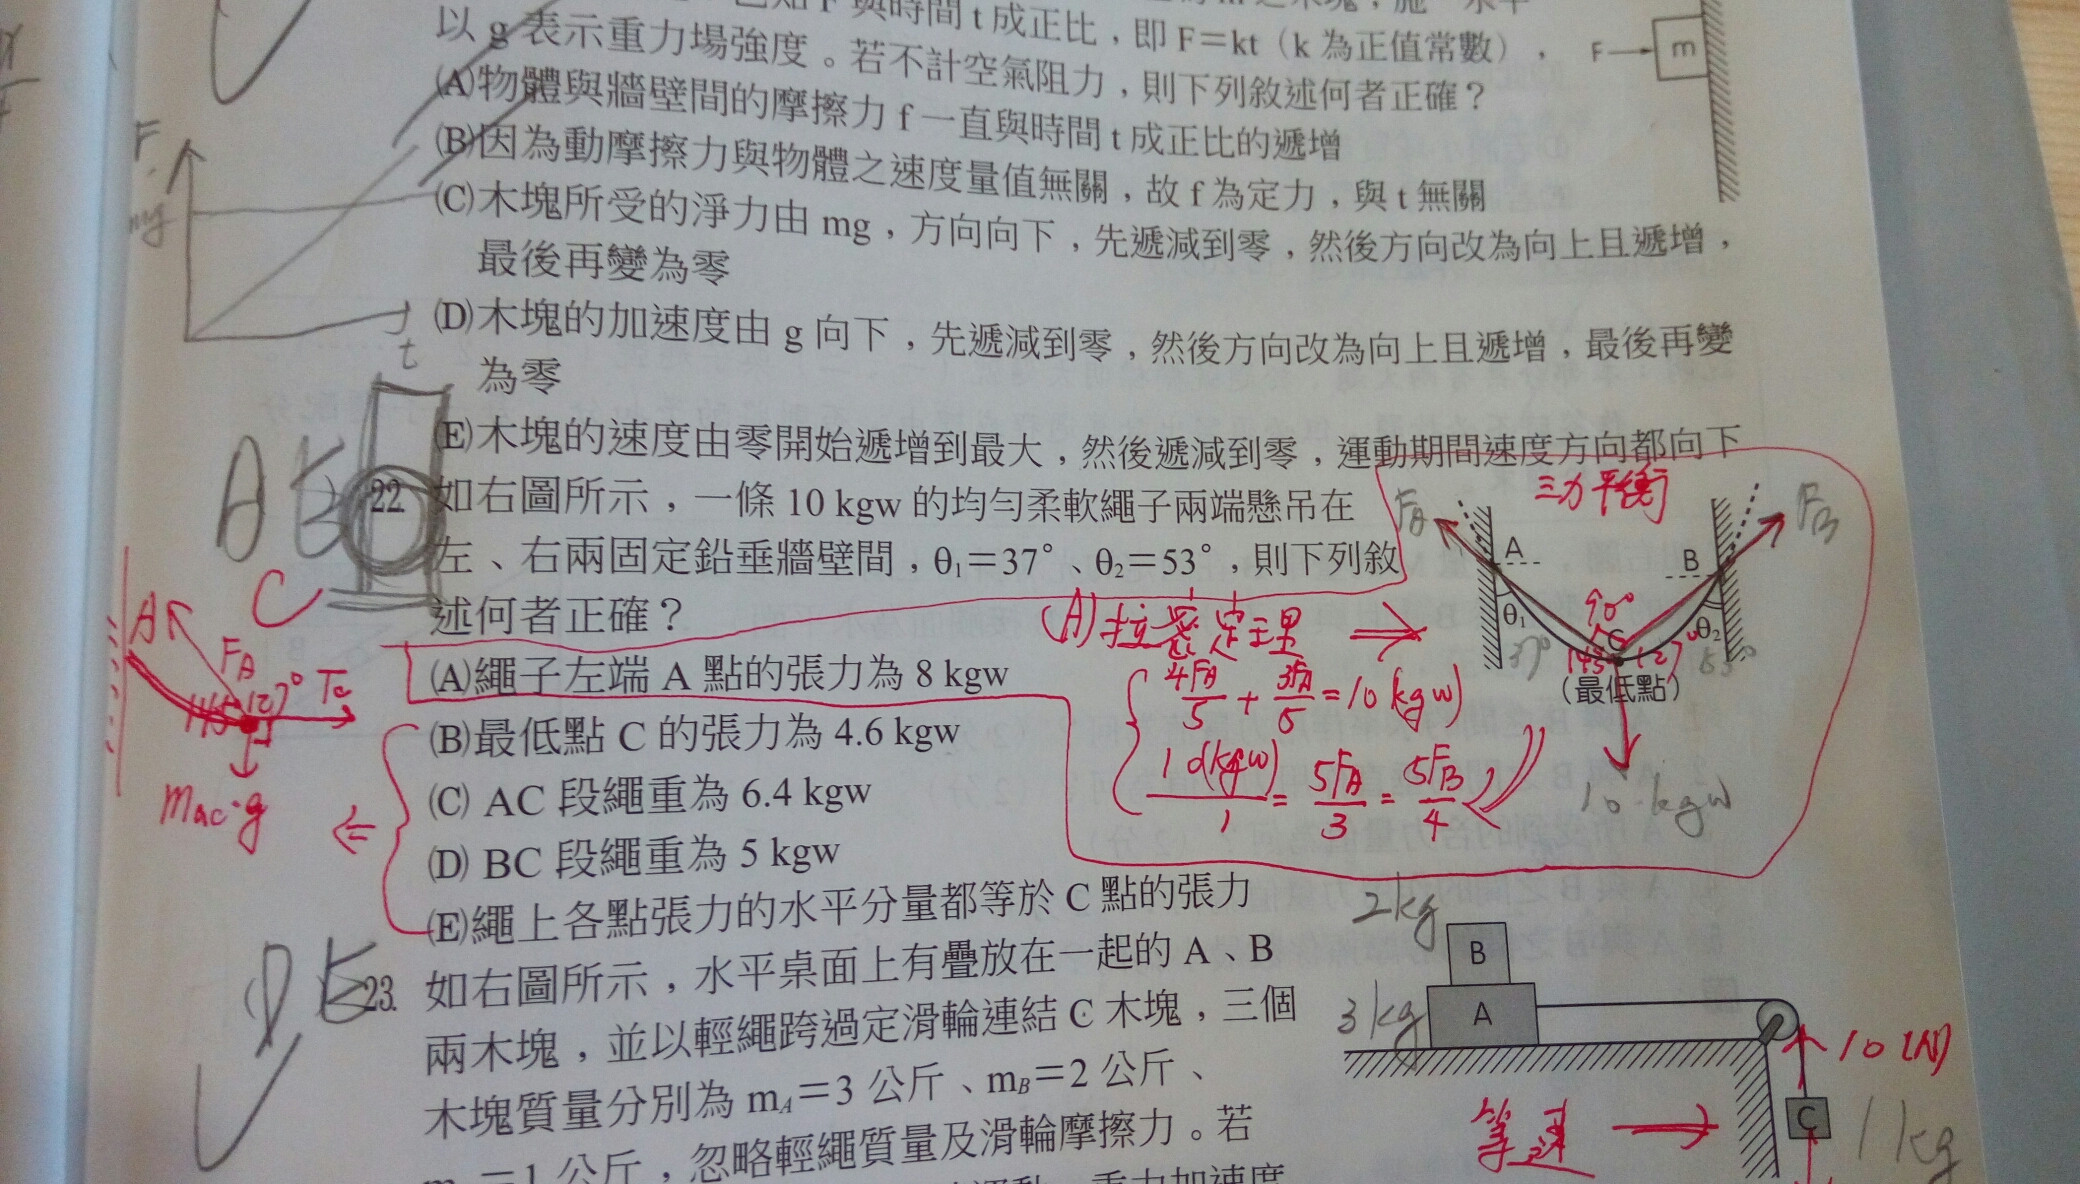 與時間 t 成正比，即 F＝kt（k 為正值常數），
以 g 表示重力場強度。若不計空氣阻力，則下列敘述何者正確？
F
m
(A)物體與牆壁間的摩擦力 f 一直與時間 t 成正比的遞增
(B)因為動摩擦力與物體之速度量值無關，故 f 為定力，與 t 無關
(C)木塊所受的淨力由 mg，方向向下，先遞減到零，然後方向改為向上且遞增，
最後再變為零
(D)木塊的加速度由 g 向下，先遞減到零，然後方向改為向上且遞增，最後再變
為零
(E)木塊的速度由零開始遞增到最大，然後遞減到零，運動期間速度方向都向下
F
mg
t
A E
C
22.
如右圖所示，一條 10 kgw 的均勻柔軟繩子兩端懸吊在
左、右兩固定鉛垂牆壁間，θ₁＝37°、θ₂＝53°，則下列敘
述何者正確？
(A)繩子左端 A 點的張力為 8 kgw
(B)最低點 C 的張力為 4.6 kgw
(C) AC 段繩重為 6.4 kgw
(D) BC 段繩重為 5 kgw
(E)繩上各點張力的水平分量都等於 C 點的張力
三力平衡
FA
FB
A
B
θ₁
θ₂
37°
53°
90°
C
143°
127°
（最低點）
10 kgw
(A) 拉密定理 ⇒
4FB/5 + 3FA/5 = 10 (kgw)
10(kgw)/1 = 5FA/3 = 5FB/4
A
FA
127°
Tc
MAC·g
D E
23.
如右圖所示，水平桌面上有疊放在一起的 A、B
兩木塊，並以輕繩跨過定滑輪連結 C 木塊，三個
木塊質量分別為 mA＝3 公斤、mB＝2 公斤、
＝1 公斤，忽略輕繩質量及滑輪摩擦力。若
重力加速度
2kg
B
3kg
A
10 (N)
C
1kg
等速 →